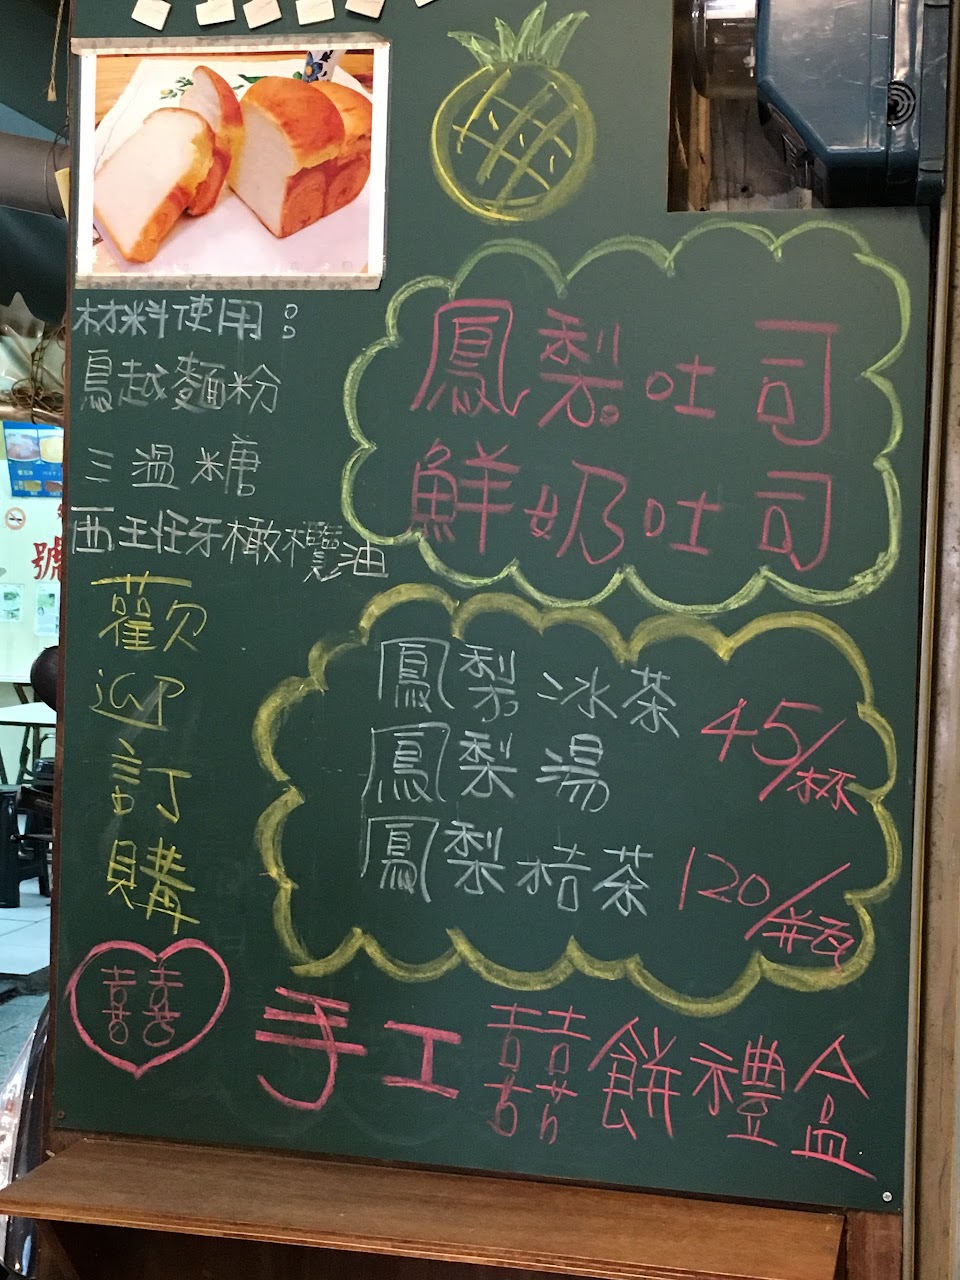 鳳梨吐司
鮮奶吐司
材料使用：
鳥越麵粉
三溫糖
西班牙橄欖油
歡迎訂購
鳳梨冰茶
鳳梨湯
45/杯
鳳梨桔茶
120/瓶
囍
手工囍餅禮盒
號